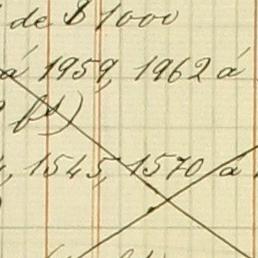 de $1000
á 1959, 1962 á
fs)
, 1545, 1570 á